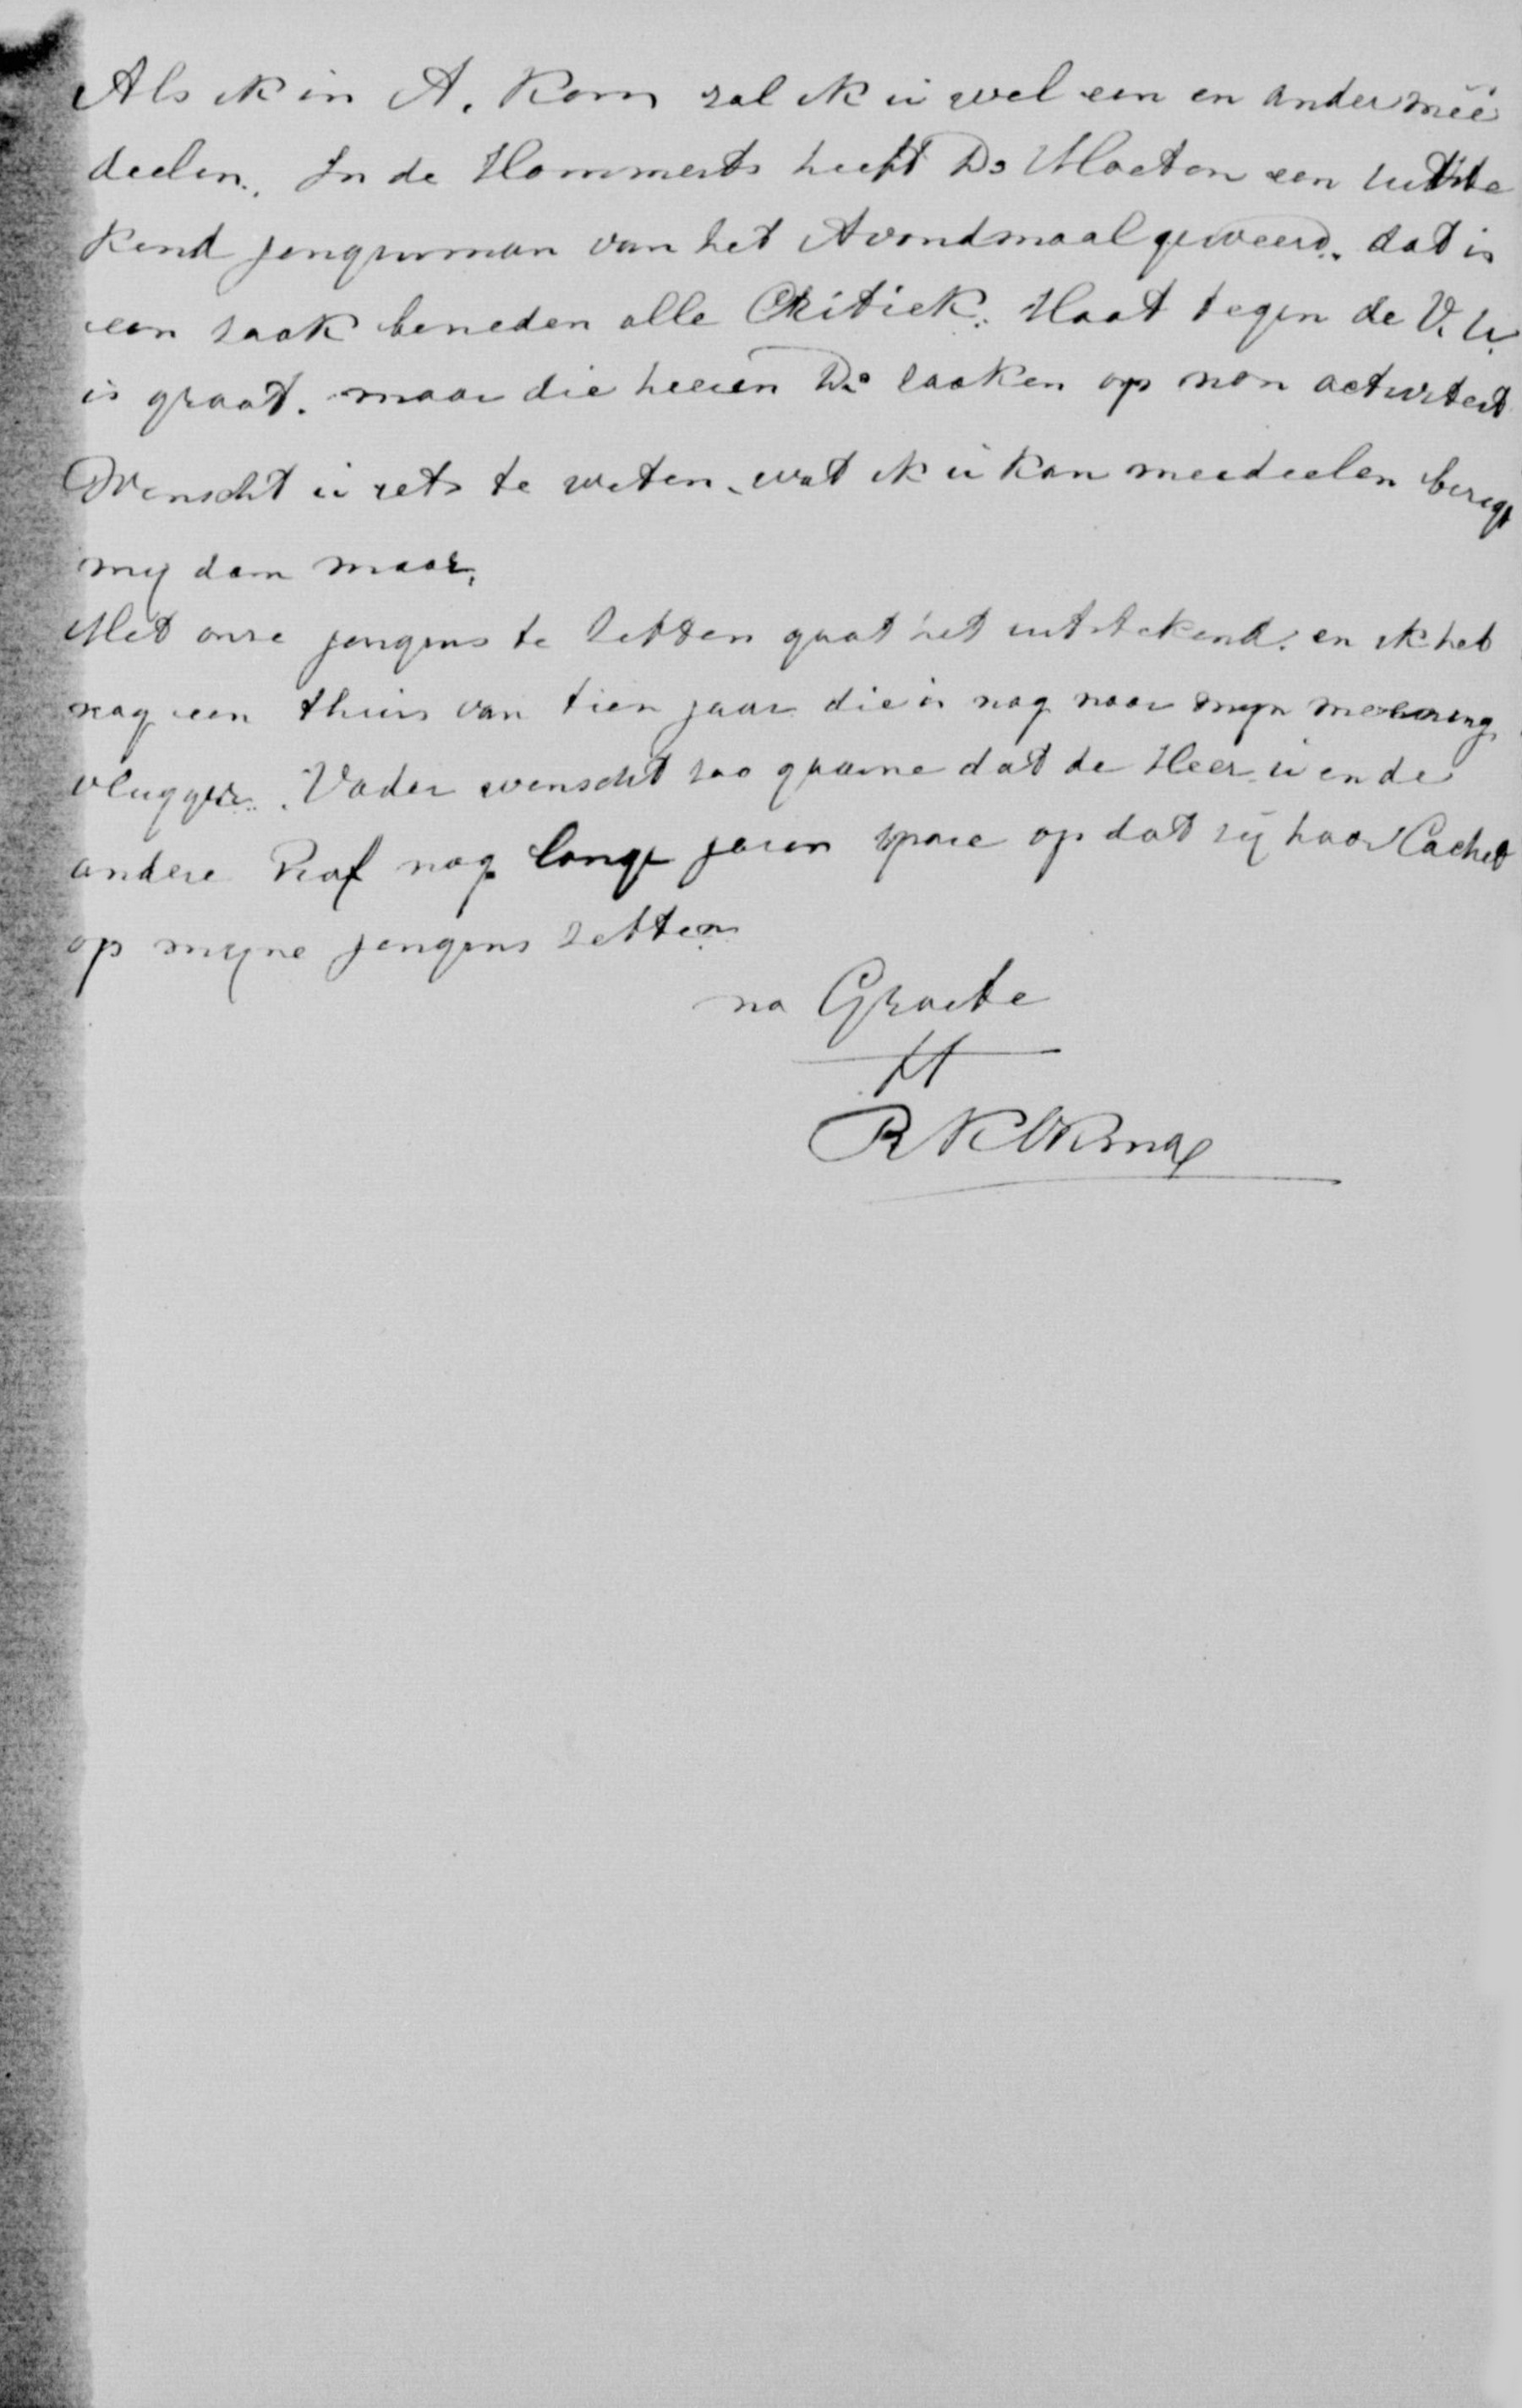 Als ik in A. kom zal ik u wel een en ander mee
deelen. In de Hommerts heeft Ds Moeton een uitste
kend jongenman van het Avondmaal geweerd. dat is
een zaak beneden alle Critiek. Haat tegen de V. U.
is groot. maar die heeren Ds raaken op non activiteit
Wenscht u iets te weten. wat ik u kan meedeelen berigt
mij dam maar.
Met onze jongens te Zetten gaat het uitstekend. en ik heb
nog een thuis van tien jaar die is nog naar mijn meening
vlugger. Vader wenscht zoo gaarne dat de Heer u en de
andere Prof nog lange jaren spare op dat zij haar Cachet
op mijne jongens zetten
na Groete
tt